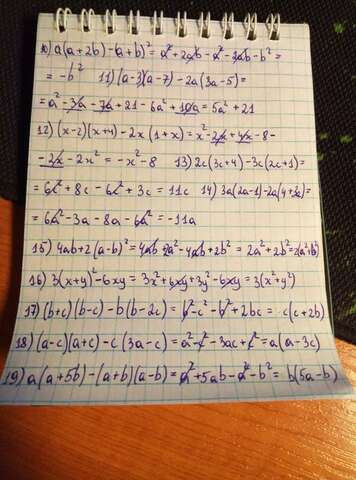 10) a(a+2b)-(a+b)² = a²+2ab-a²-2ab-b² =
= -b² 11) (a-3)(a-7)-2a(3a-5)=
= a²-3a-7a+21-6a²+10a = 5a²+21
12) (x-2)(x+4)-2x(1+x) = x²-2x+4x-8-
-2x-2x² = -x²-8 13) 2c(3c+4)-3c(2c+1)=
= 6c²+8c-6c²+3c = 11c 14) 3a(2a-1)-2a(4+3a)=
= 6a²-3a-8a-6a² = -11a
15) 4ab+2(a-b)² = 4ab 2a²-4ab+2b² = 2a²+2b²=2(a²+b²)
16) 3(x+y)²-6xy = 3x²+6xy+3y²-6xy = 3(x²+y²)
17) (b+c)(b-c)-b(b-2c) = b²-c²-b²+2bc = c(c+2b)
18) (a-c)(a+c)-c(3a-c) = a²-c²-3ac+c²=a(a-3c)
19) a(a+5b)-(a+b)(a-b) = a²+5ab-a²-b² = b(5a-b)